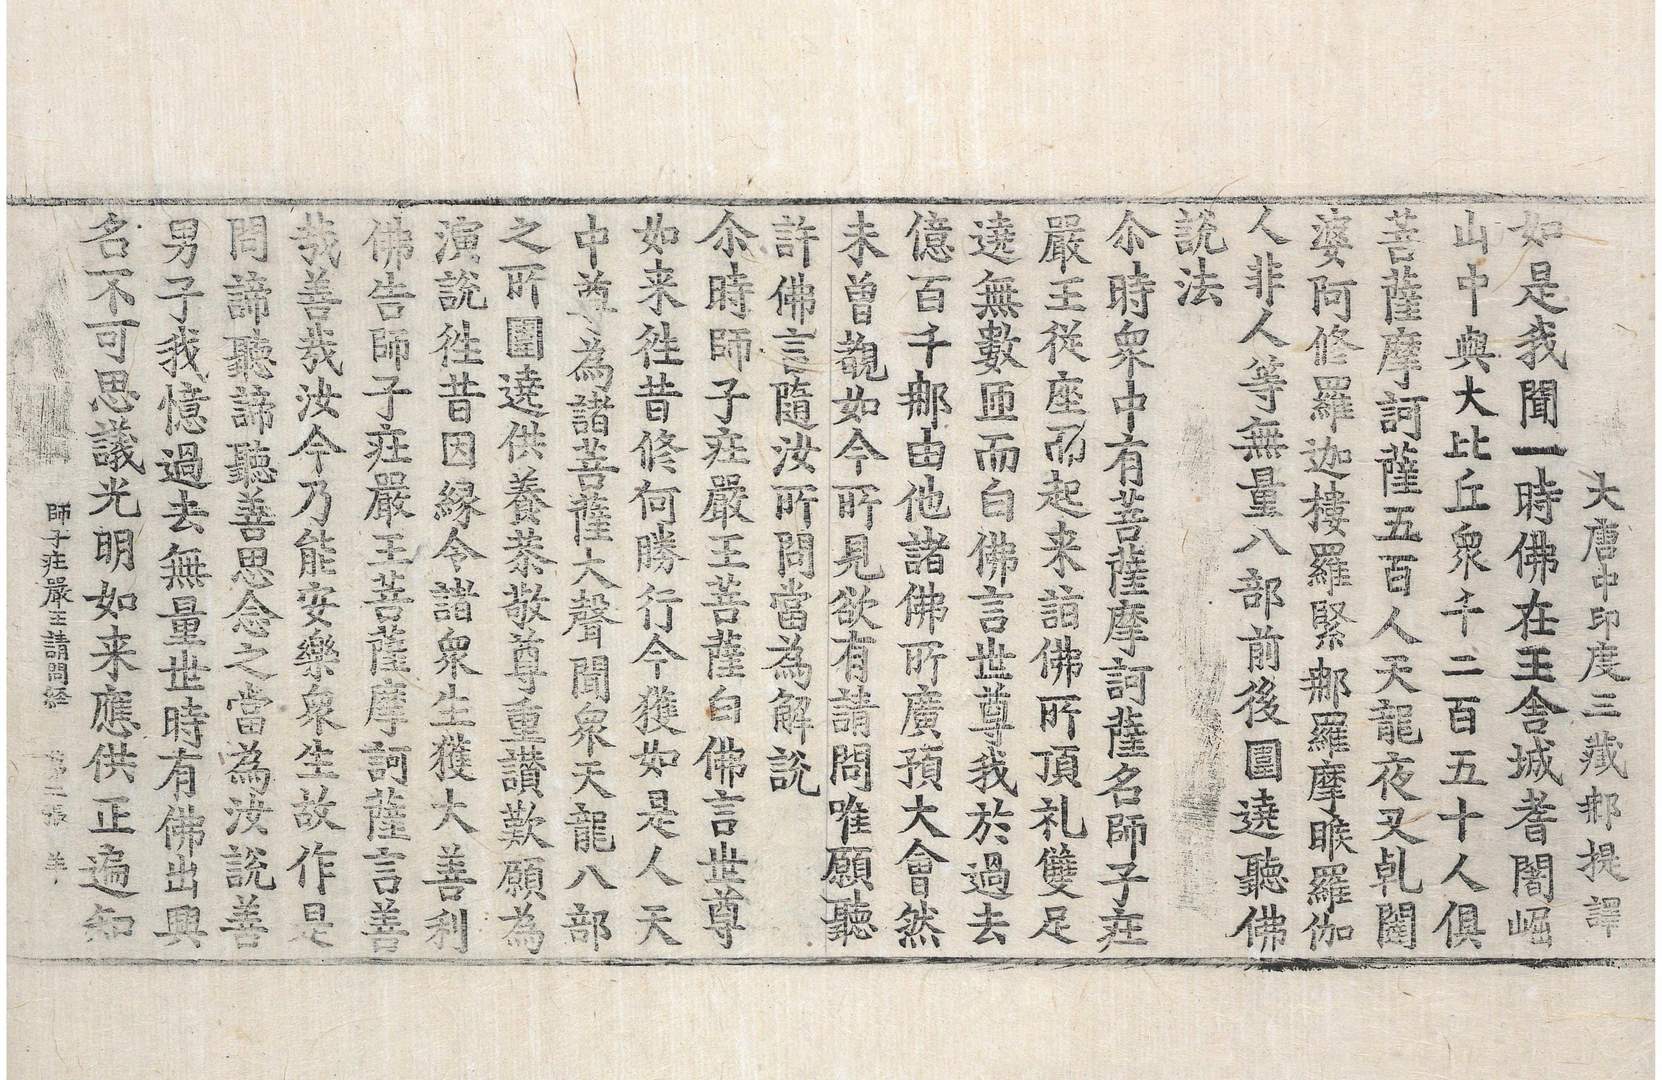 大唐中印度三藏那提譯
如是我聞一時佛在王舍城耆闍崛
山中與大比丘衆千二百五十人俱
菩薩摩訶薩五百人天龍夜叉乹闥
婆阿修羅迦樓羅緊那羅摩睺羅伽
人非人等無量八部前後圍遶聽佛
說法
尒時衆中有菩薩摩訶薩名師子㽵
嚴王從座而起来詣佛所頂礼雙足
遶無數匝而白佛言世尊我於過去
億百千那由他諸佛所廣預大會然
未曾覩如今所見欲有請問唯願聽
許佛言隨汝所問當為解說
尒時師子㽵嚴王菩薩白佛言世尊
如来徃昔修何勝行今獲如是人天
中尊為諸菩薩大聲聞衆天龍八部
之所圍遶供養恭敬尊重讚歎願為
演說徃昔因緣令諸衆生獲大善利
佛告師子㽵嚴王菩薩摩訶薩言善
㢤善㢤汝今乃能安樂衆生故作是
問諦聽諦聽善思念之當為汝說善
男子我憶過去無量世時有佛出興
名不可思議光明如来應供正遍知
師子㽵嚴王請問経 第二張 羊